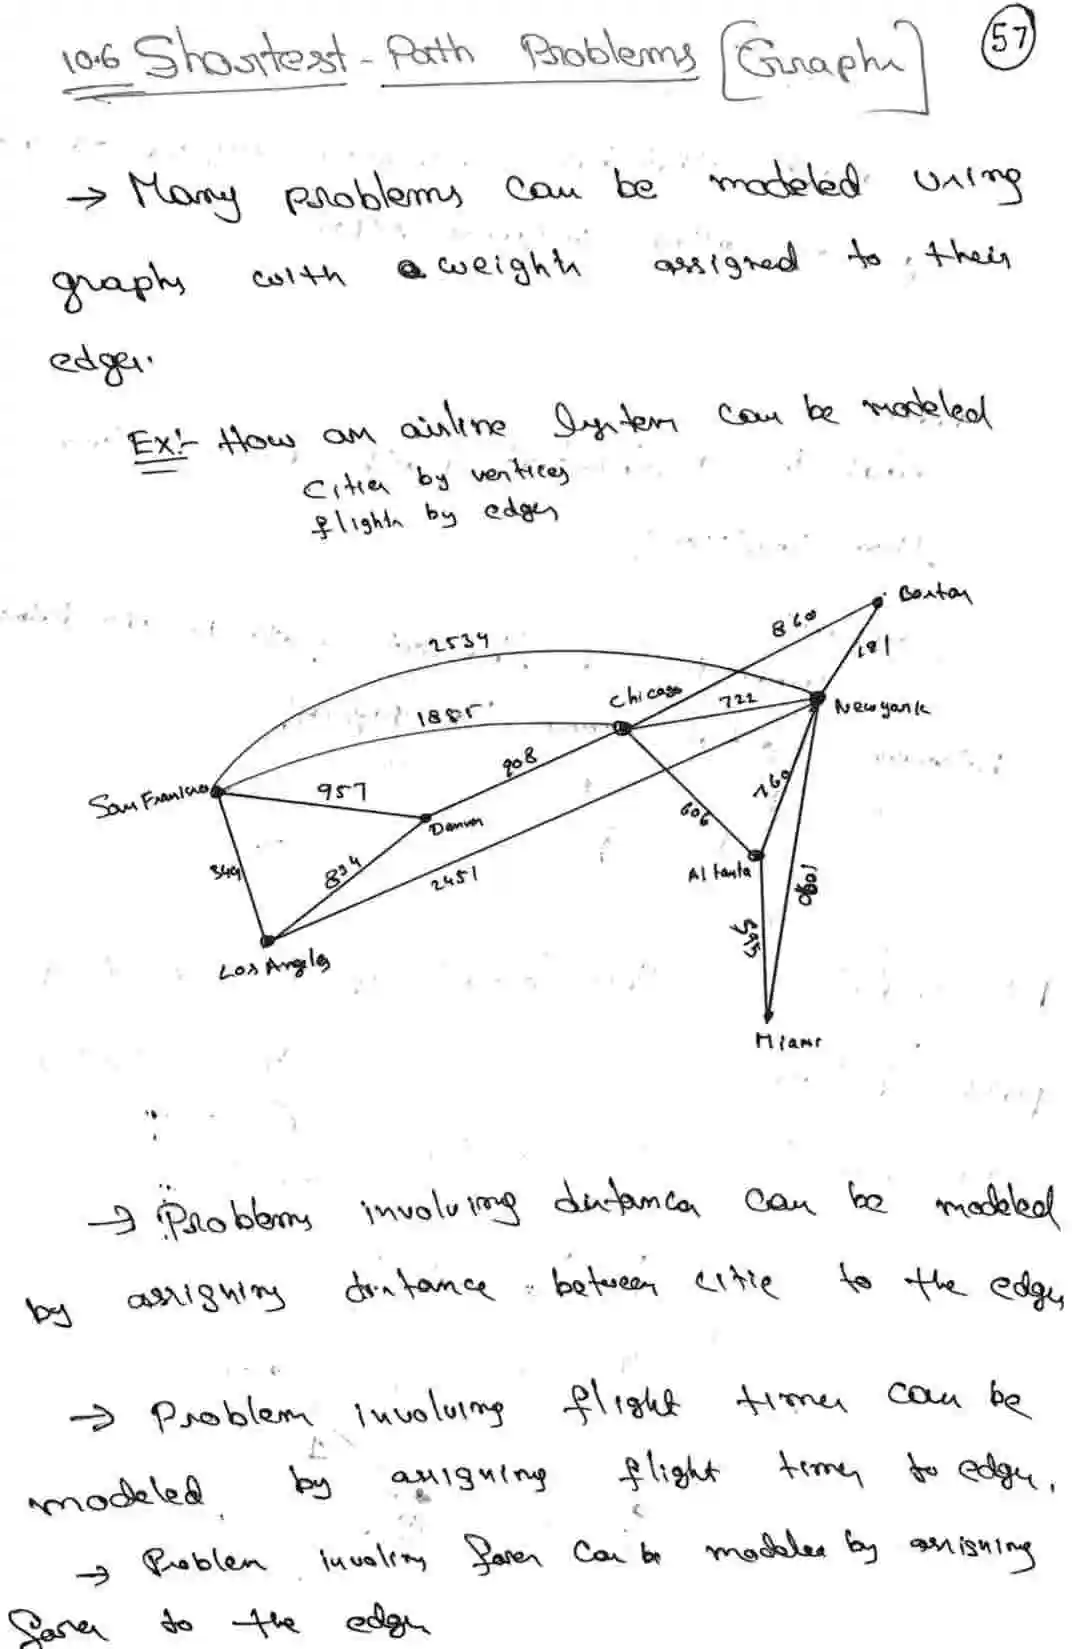 57
10.6 Shortest-Path Problems [Graphs]
→ Many problems can be modeled using
graphs with weights assigned to their
edges.
Ex:- How an airline System can be modeled
Cities by vertices
flights by edges
Boston
860
181
2534
Chicago
722
Newyork
1885
908
San Francisco
957
760
Denver
606
349
834
2451
Altanta
1090
595
Los Angles
Miami
→ Problems involving distances can be modeled
by assigning distance between citie to the edges
→ Problem involving flight times can be
modeled by assigning flight times to edges.
→ Problem involving fares can be modeled by assigning
fares to the edges